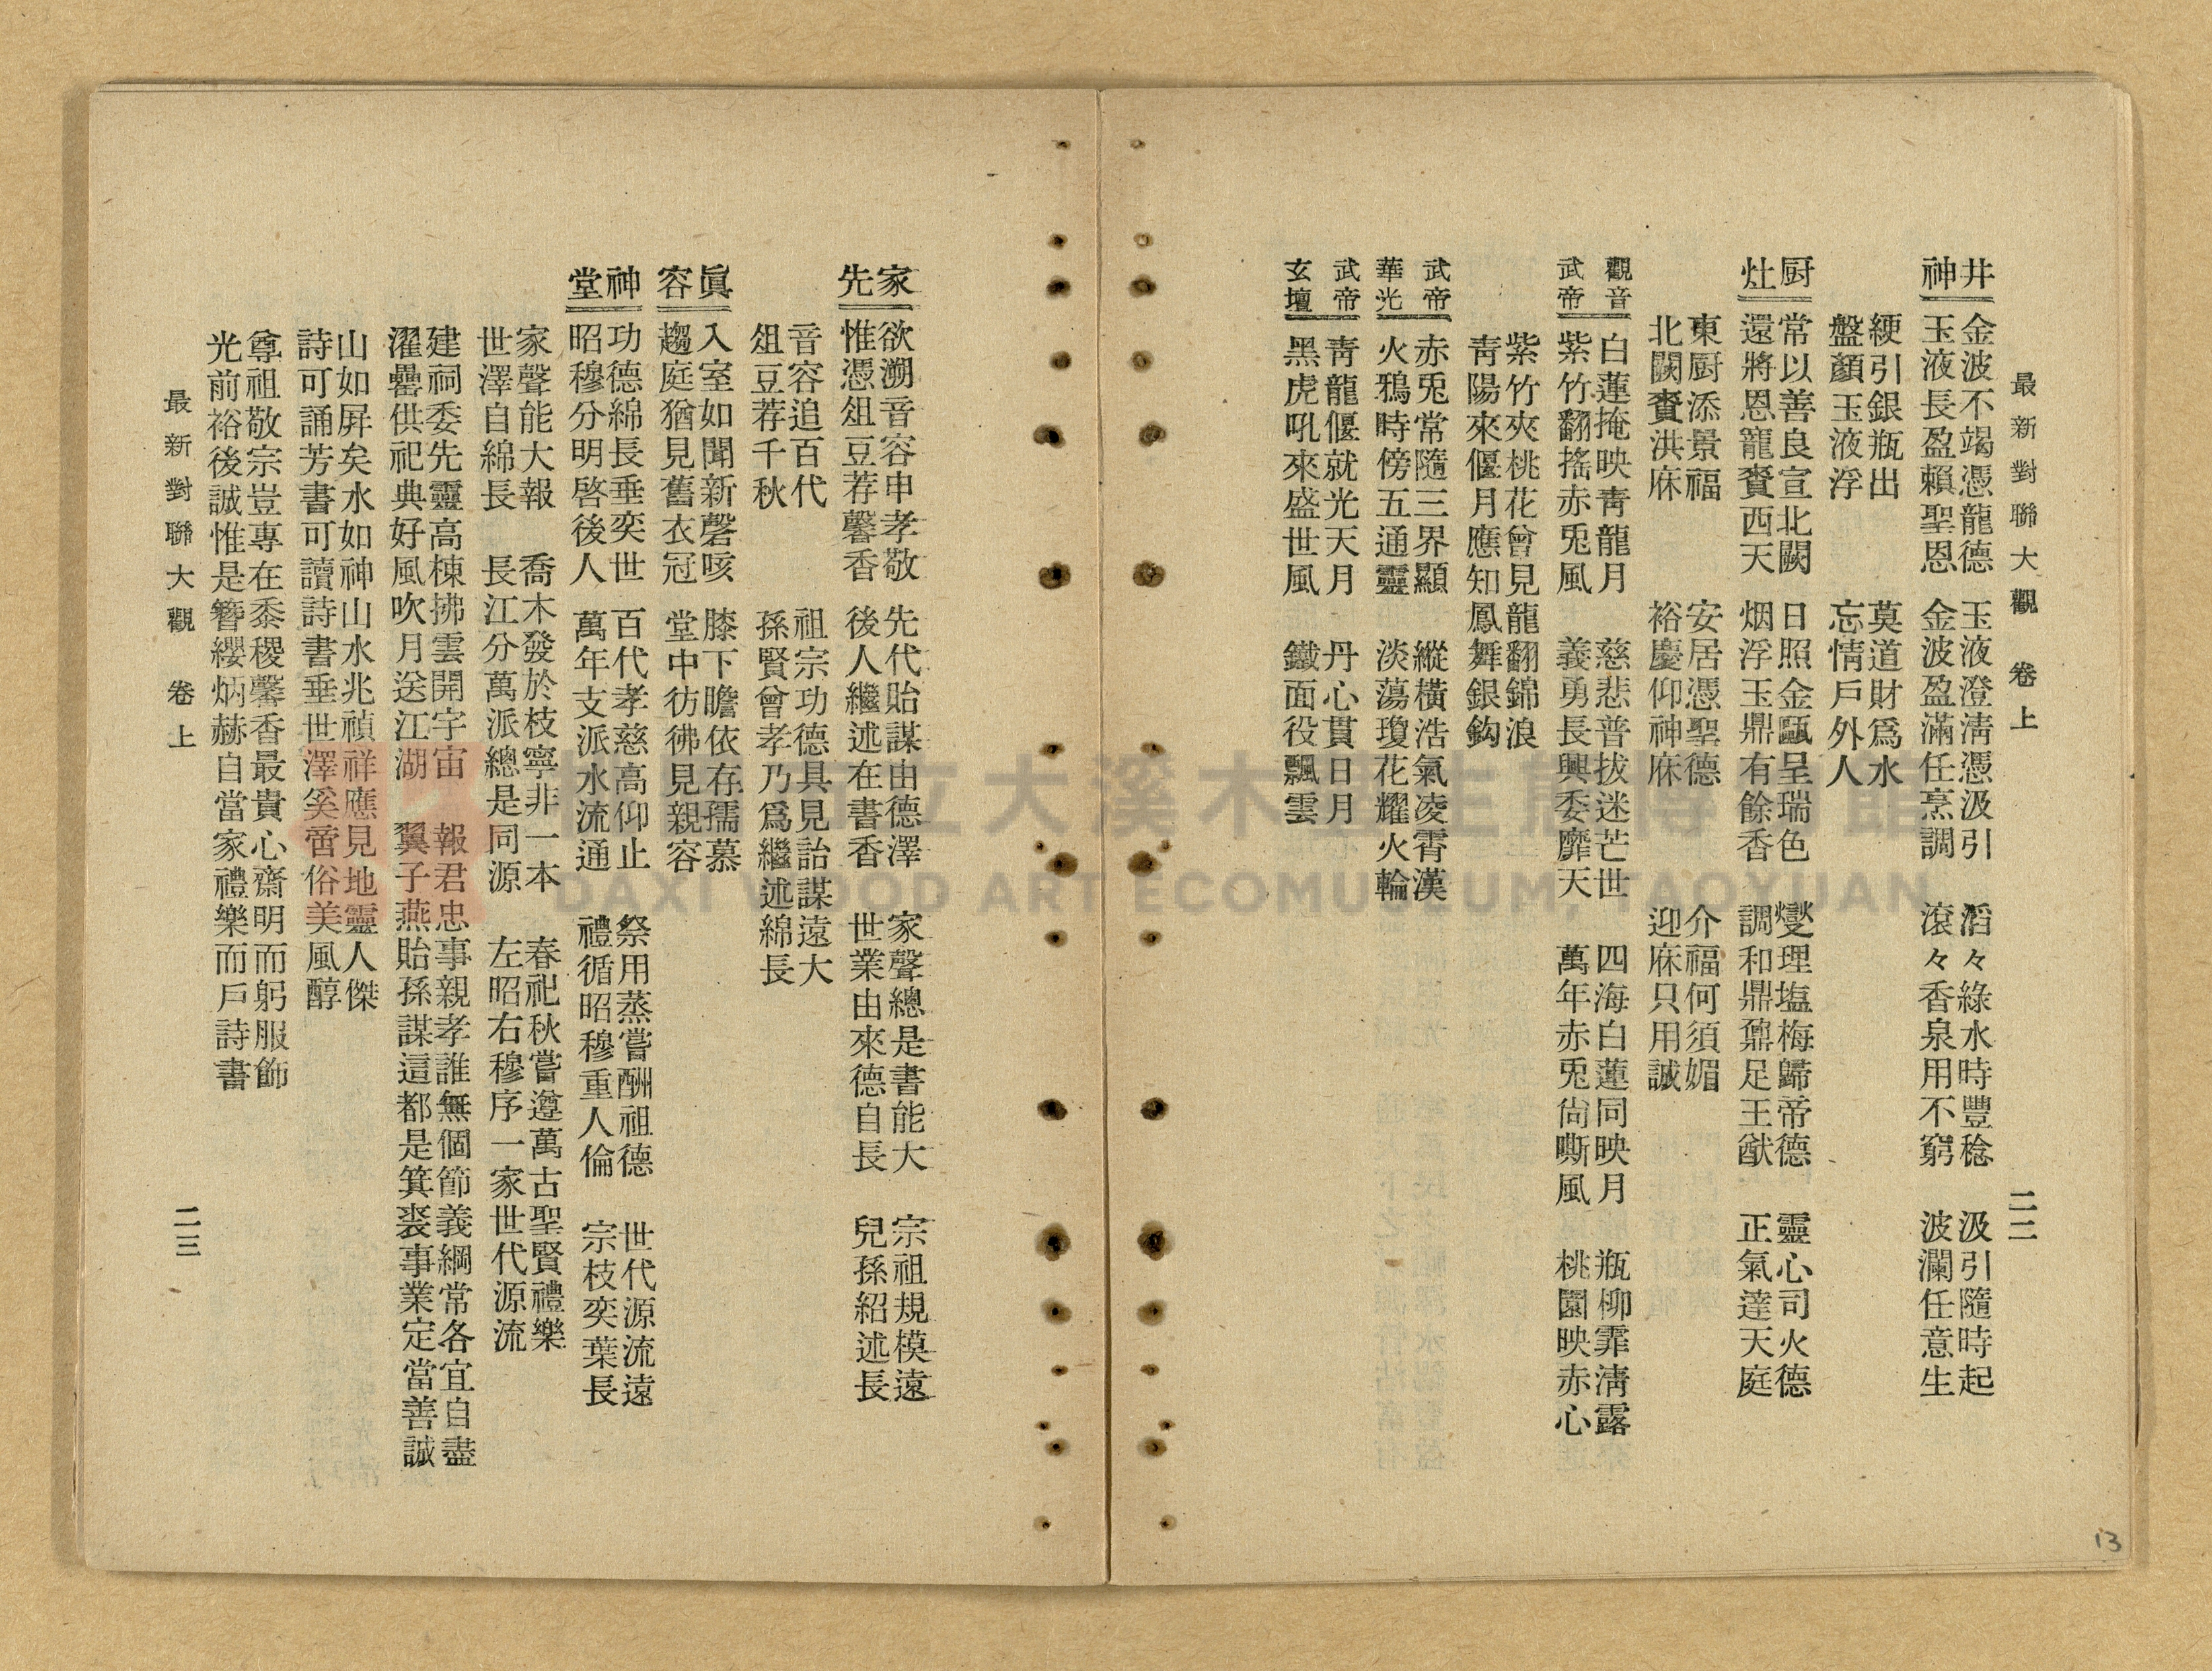 最新對聯大觀　卷上　二二
井神
金波不竭憑龍德　玉液澄淸憑汲引　滔々綠水時豐稔　汲引隨時起
玉液長盈賴聖恩　金波盈滿任烹調　滾々香泉用不窮　波瀾任意生
綆引銀瓶出　莫道財爲水
盤顏玉液浮　忘情戶外人
厨灶
常以善良宣北闕　日照金甌呈瑞色　燮理塩梅歸帝德　靈心司火德
還將恩寵賚西天　烟浮玉鼎有餘香　調和鼎鼐足王猷　正氣達天庭
東厨添景福　安居憑聖德　介福何須媚
北闕賚洪庥　裕慶仰神庥　迎庥只用誠
觀音
武帝
白蓮掩映靑龍月　慈悲普拔迷芒世　四海白蓮同映月　瓶柳霏淸露
紫竹翻搖赤兎風　義勇長興委靡天　萬年赤兎尙嘶風　桃園映赤心
紫竹夾桃花曾見龍翻錦浪
靑陽來偃月應知鳳舞銀鈎
武帝
華光
赤兎常隨三界顯　縱橫浩氣凌霄漢
火鴉時傍五通靈　淡蕩瓊花耀火輪
武帝
玄壇
靑龍偃就光天月　丹心貫日月
黑虎吼來盛世風　鐵面役飄雲
家先
欲溯音容申孝敬　先代貽謀由德澤　家聲總是書能大　宗祖規模遠
惟憑俎豆荐馨香　後人繼述在書香　世業由來德自長　兒孫紹述長
音容追百代　祖宗功德具見詒謀遠大
俎豆荐千秋　孫賢曾孝乃爲繼述綿長
眞容
入室如聞新磬咳　膝下瞻依存孺慕
趨庭猶見舊衣冠　堂中彷彿見親容
神堂
功德綿長垂奕世　百代孝慈高仰止　祭用蒸嘗酬祖德　世代源流遠
昭穆分明啓後人　萬年支派水流通　禮循昭穆重人倫　宗枝奕葉長
家聲能大報　喬木發於枝寧非一本　春祀秋嘗遵萬古聖賢禮樂
世澤自綿長　長江分萬派總是同源　左昭右穆序一家世代源流
建祠委先靈高棟拂雲開宇宙　報君忠事親孝誰無個節義綱常各宜自盡
濯罍供祀典好風吹月送江湖　翼子燕貽孫謀這都是箕裘事業定當善誠
山如屛矣水如神山水兆禎祥應見地靈人傑
詩可誦芳書可讀詩書垂世澤奚啻俗美風醇
尊祖敬宗豈專在黍稷馨香最貴心齋明而躬服飾
光前裕後誠惟是簪纓炳赫自當家禮樂而戶詩書
最新對聯大觀　卷上　二三
13
DAXI WOOD ART ECOMUSEUM, TAOYUAN